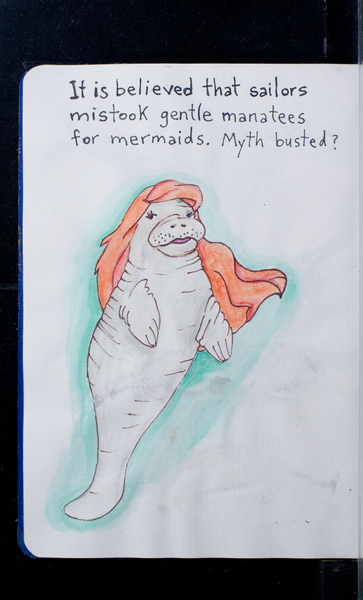 It is believed that sailors
mistook gentle manatees
for mermaids. Myth busted?